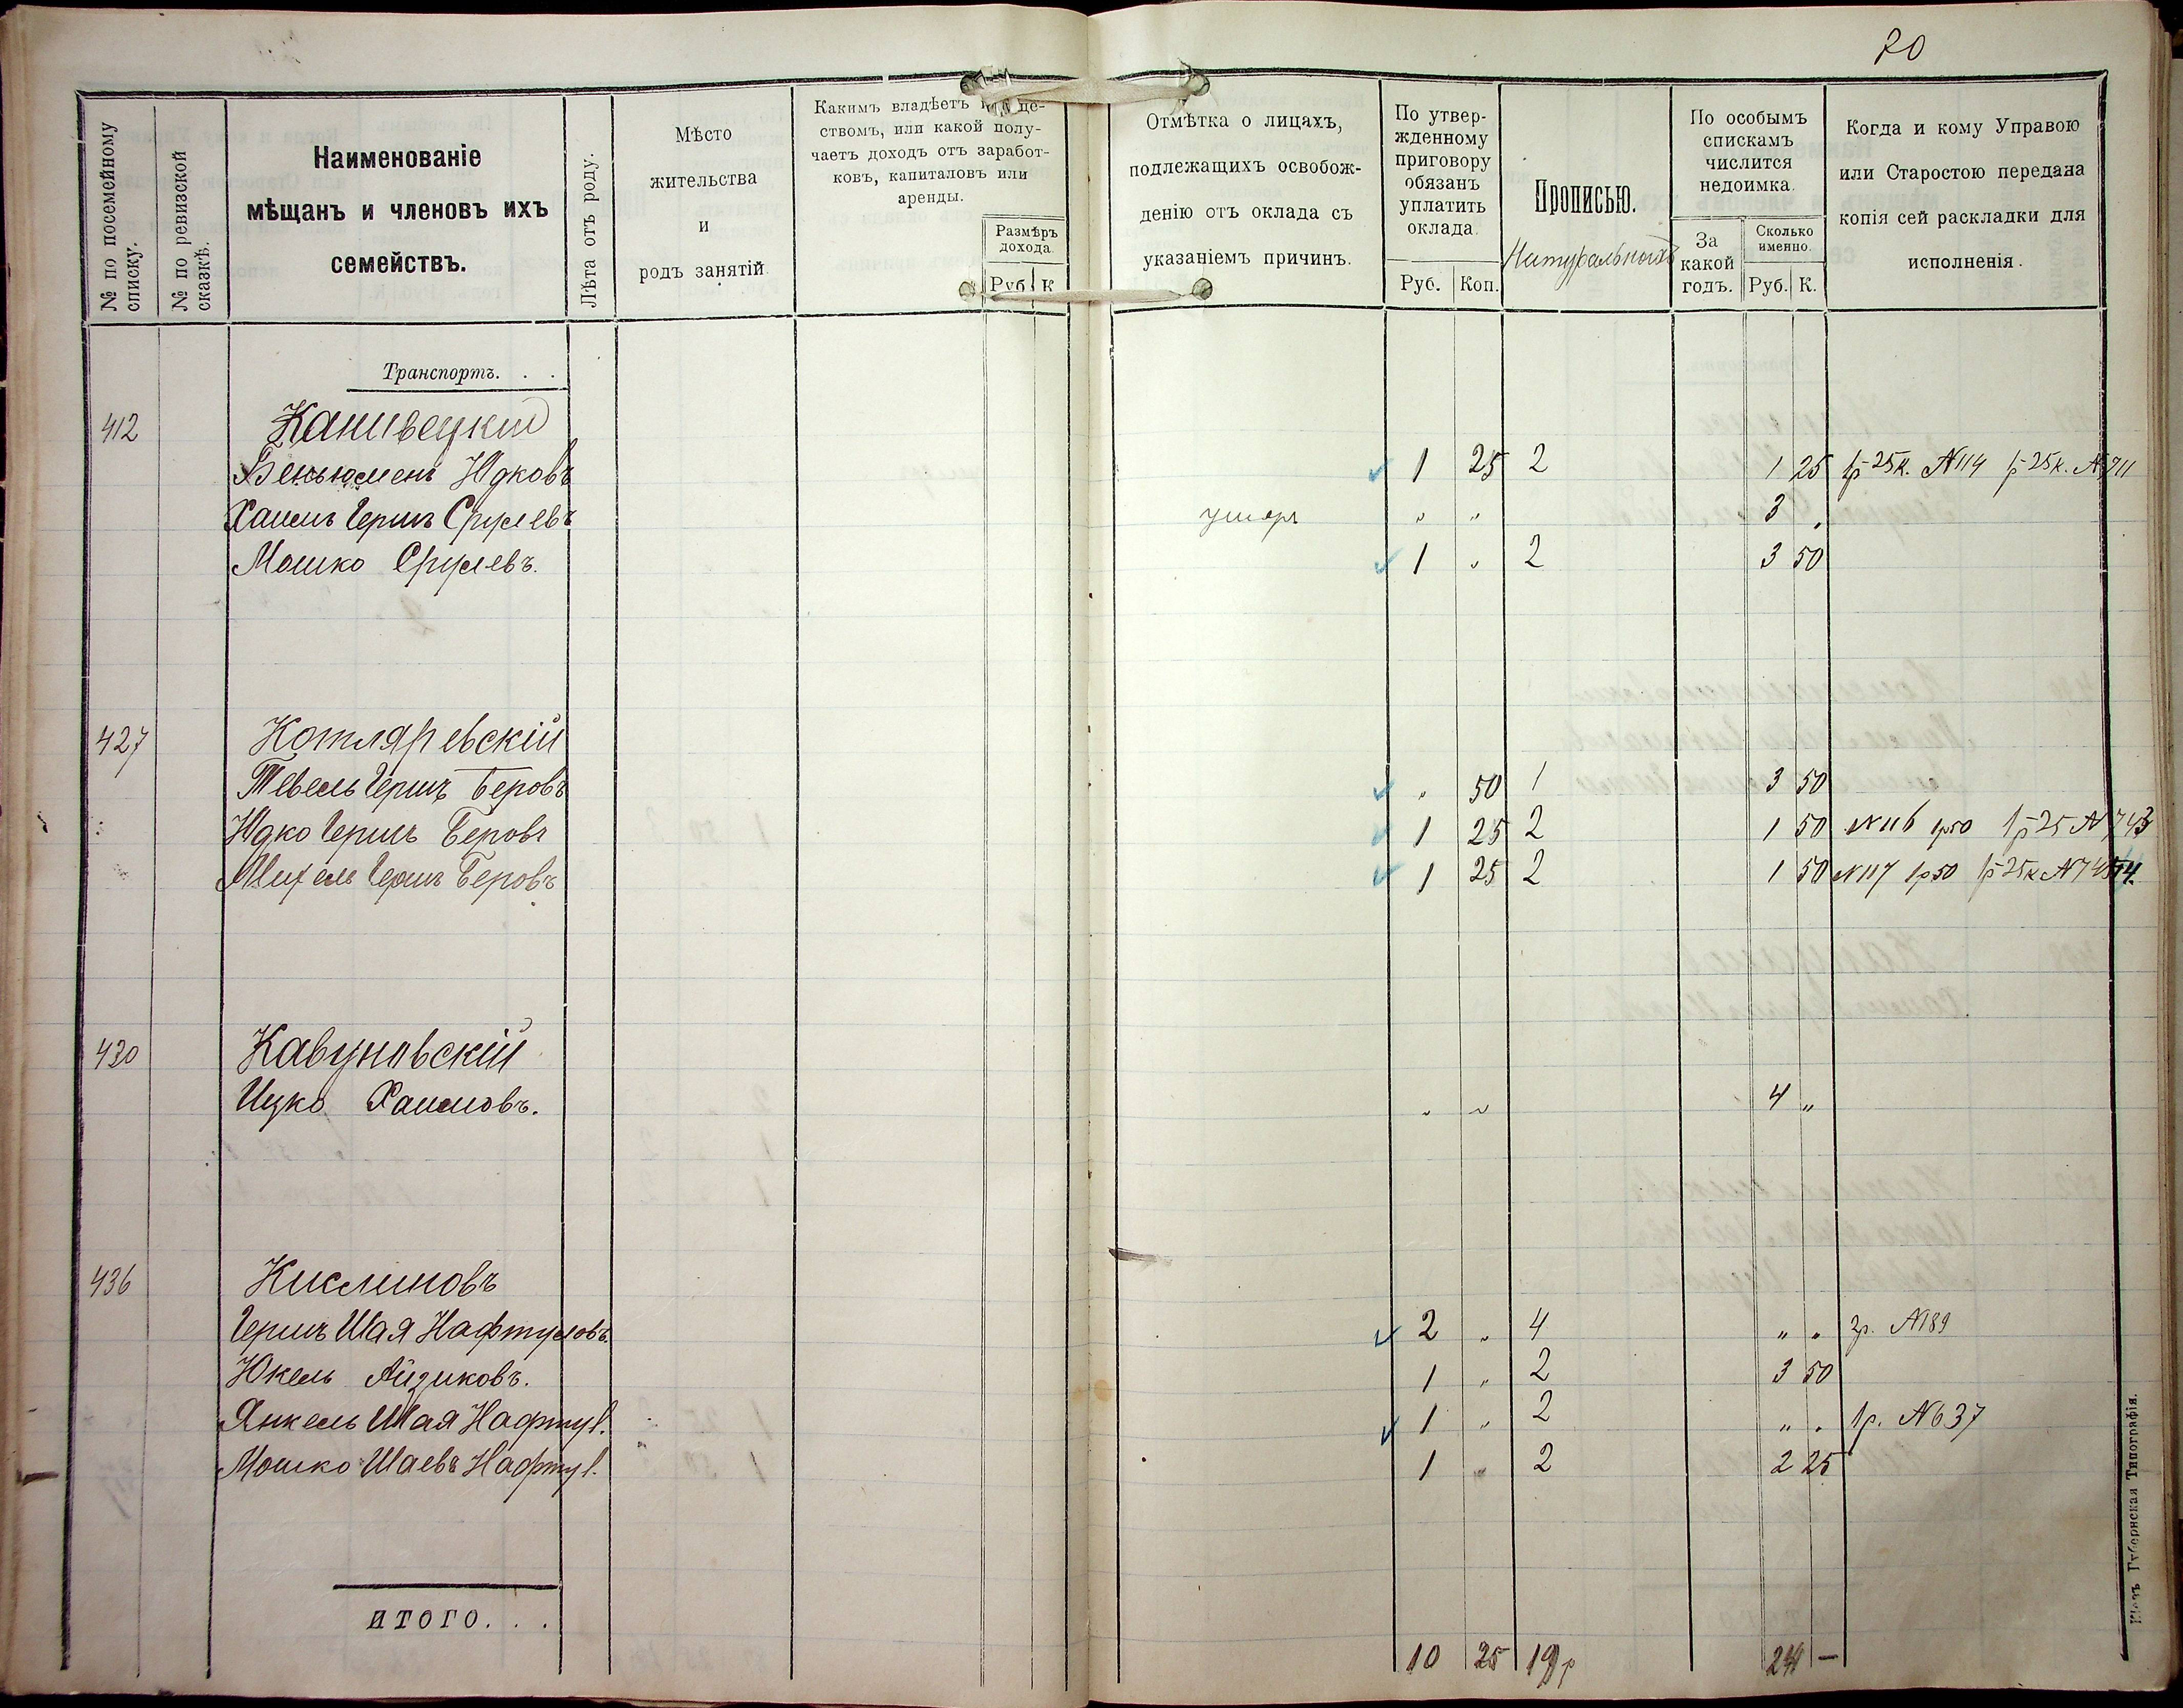 70
№ по посемейному списку.
№ по ревизской сказкѣ.
Наименованіе
мѣщанъ и членовъ ихъ
семействъ.
Лѣта отъ роду.
Мѣсто
жительства
и
родъ занятій.
Какимъ владѣетъ
ствомъ, или какой полу-
чаетъ доходъ отъ заработ-
ковъ, капиталовъ или
аренды.
Размѣръ
дохода.
Руб. К
Отмѣтка о лицахъ,
подлежащихъ освобож-
денію отъ оклада съ
указаніемъ причинъ.
По утвер-
жденному
приговору
обязанъ
уплатить
оклада.
Руб. Коп.
Прописью.
По особымъ
спискамъ
числится
недоимка.
За
какой
годъ.
Сколько
именно.
Руб. К.
Когда и кому Управою
или Старостою передана
копія сей раскладки для
исполненія.
Транспортъ. . .
412 Каневецкій
Беньюменъ Юдковъ 1 25 2 1 25 1р 25к. №114 1р 25к. №711
Хаимъ Гершъ Срулевъ умеръ „ „ 3 „
Мошко Срулевъ. 1 „ 2 3 50
427 Котляревскій
Тевель Гершъ Беровъ „ 50 1 3 50
Юдко Гершъ Беровъ 1 25 2 1 50 №116 1р50 1р25 №743
Михель Гершъ Беровъ 1 25 2 1 50 №117 1р50 1р25к
430 Кавуновскій
Ицко Хаимовъ. „ „ 4 „
436 Кислиновъ
Гершъ Шая Нафтуловъ. 2 „ 4 „ „ 2р. №189
Юкель Айзиковъ. 1 „ 2 3 50
Янкель Шая Нафтул. 1 „ 2 „ „ 1р. №637
Мошко Шаевъ Нафтул. 1 „ 2 2 25
ИТОГО. . .
10 25 19р 24 —
Кіевъ Губернская Типографія.